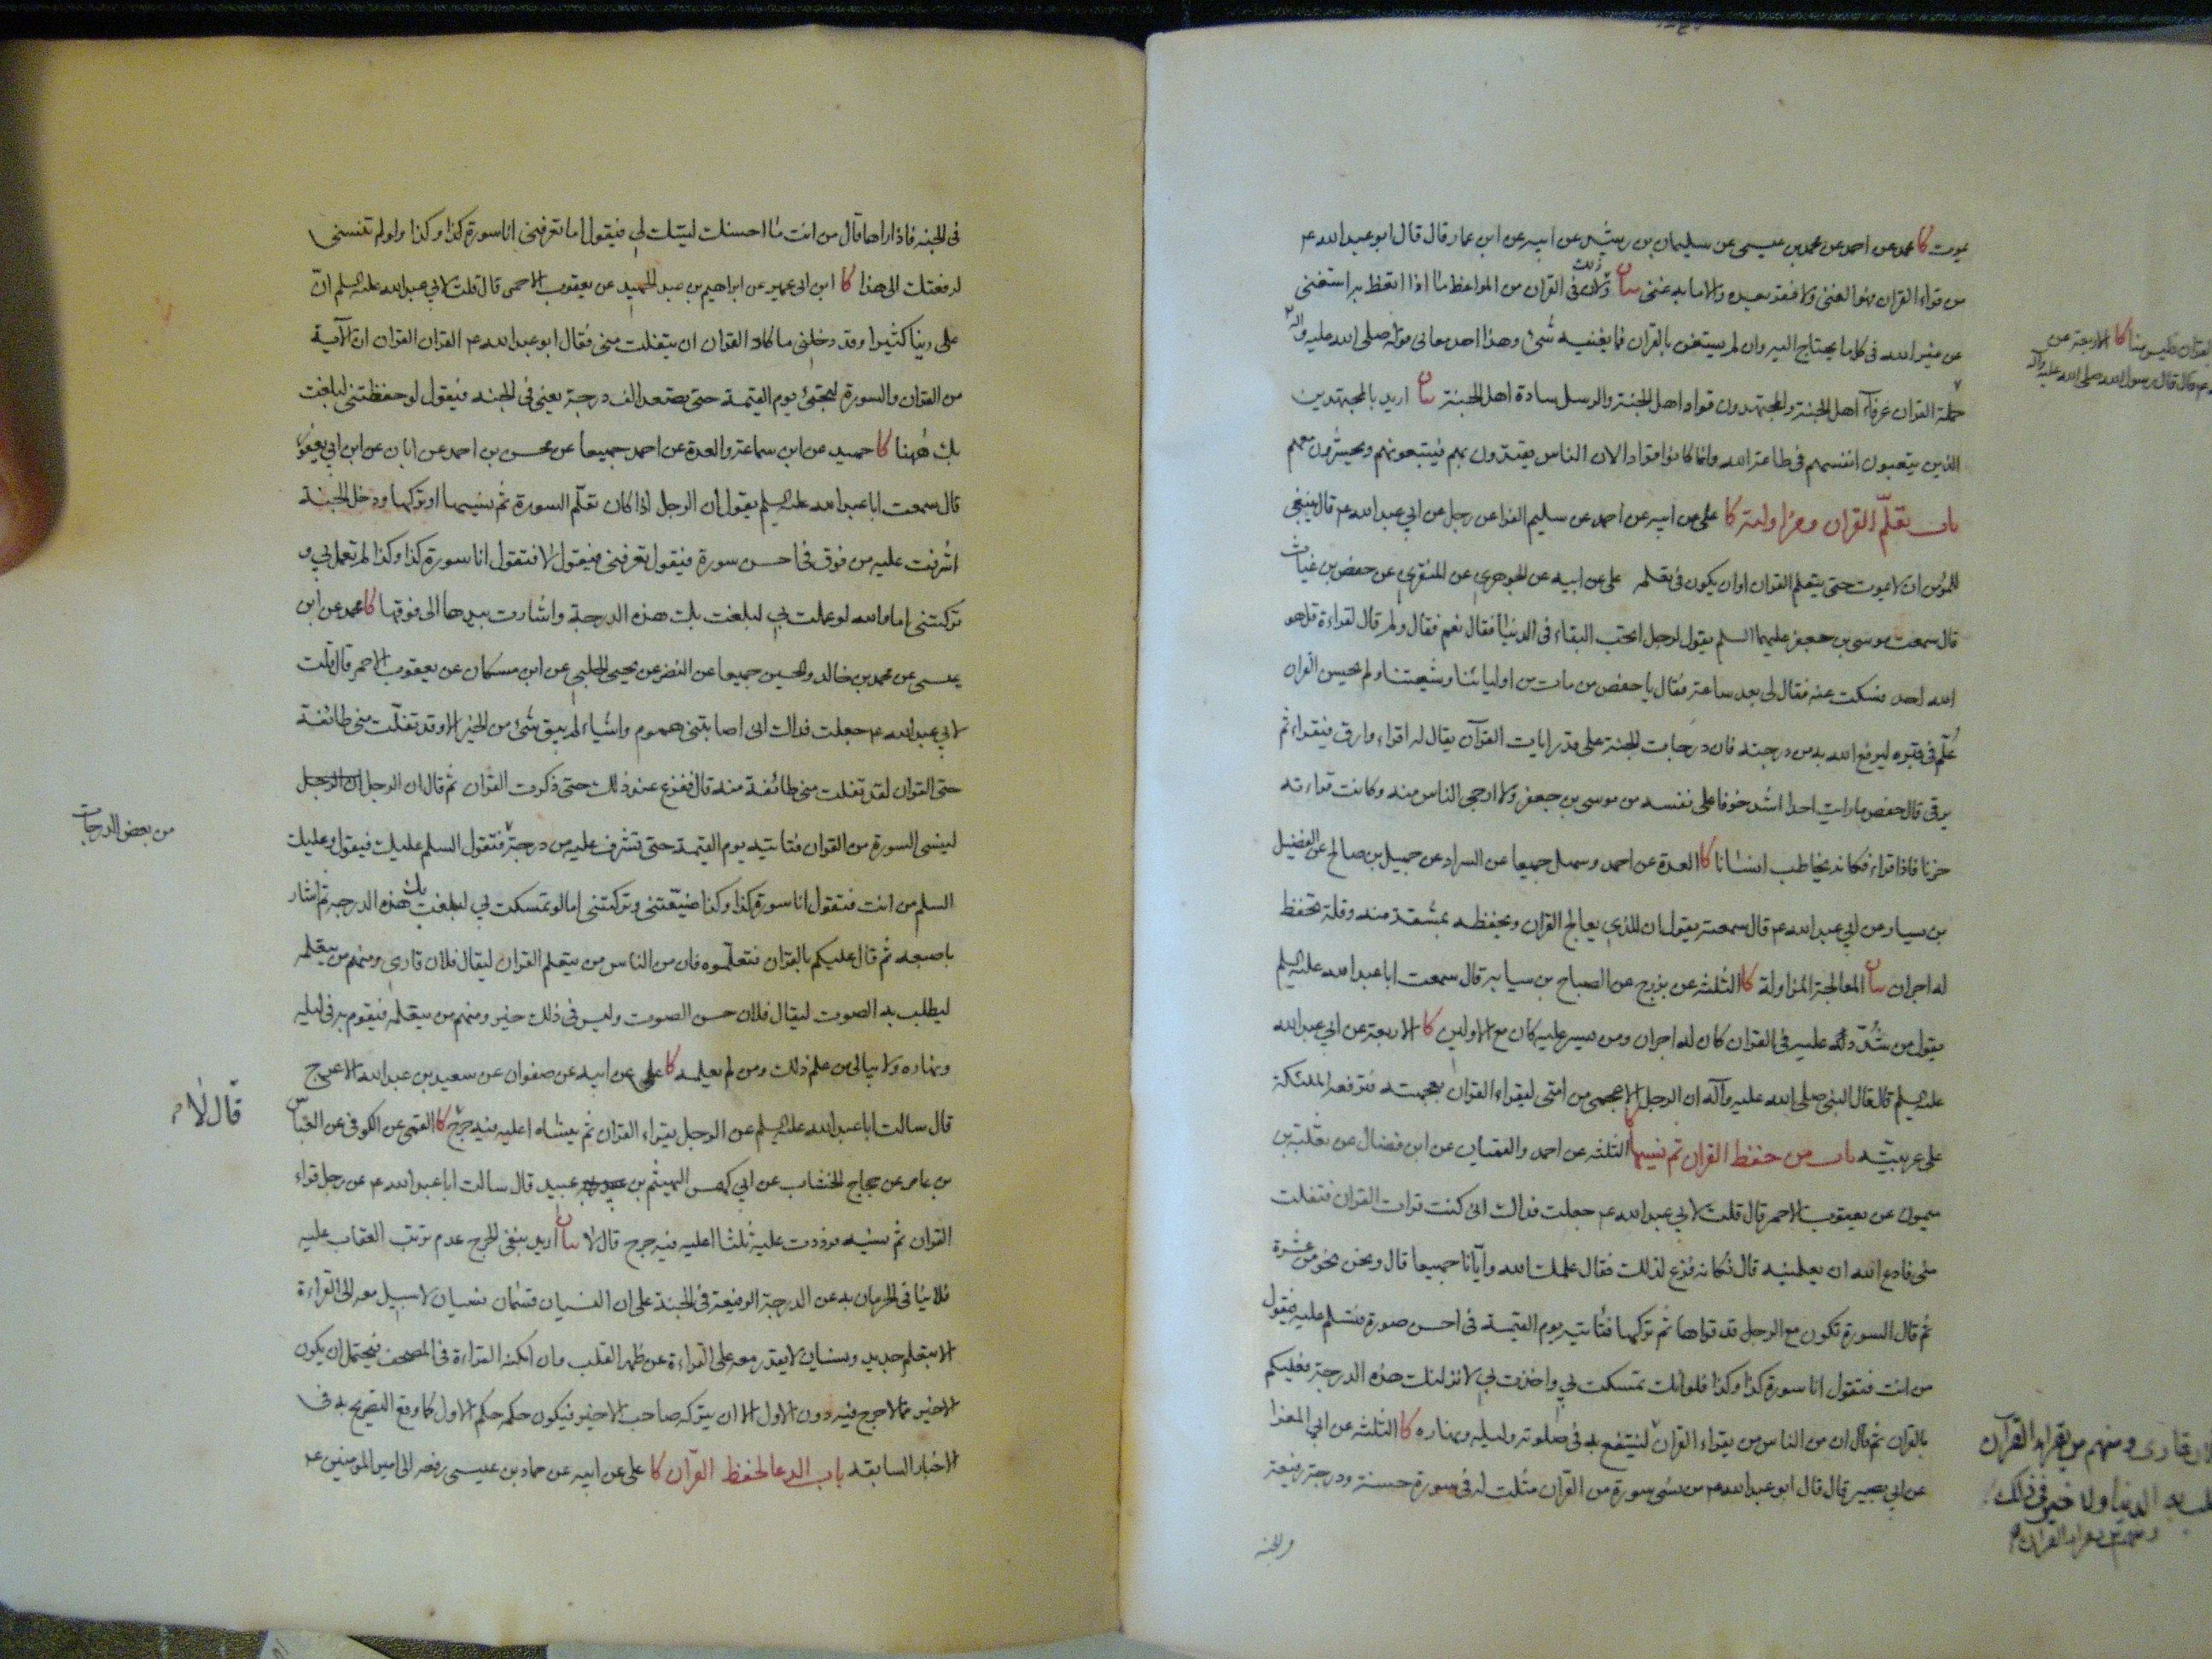 يموت كا محمد عن احمد عن محمد بن عيسى عن سليمان بن رشيد عن ابيه عن ابن عمار قال قال ابو عبد الله ع
من قراء القران فهو الغنى ولا فقر بعده والا ما به غنى بيان وذلك لان فى القران من المواعظ ما اذا اتعظ به استغنى
عن غير الله فى كل ما يحتاج اليه وان لم يستغن بالقران فما يغنيه شئ وهذا احد معانى قوله صلى الله عليه واله
حملة القران عرفاء اهل الجنة والمجتهدون قواد اهل الجنة والرسل سادة اهل الجنة بيان اريد بالمجتهدين
الذين يتعبون انفسهم فى طاعة الله وانما كانوا قوادا لان الناس يقتدون بهم فيتبعونهم ويحشرون معهم
باب تعلّم القران ومزاولته كا على عن ابيه عن احمد عن سليم الفرا عن رجل عن ابي عبد الله ع قال ينبغى
للمؤمن ان لا يموت حتى يتعلم القران او ان يكون فى تعلمه على عن ابيه عن الجوهري عن المنقري عن حفص بن غياث
قال سمعت موسى بن جعفر عليهما السلم يقول لرجل اتحب البقاء فى الدنيا فقال نعم فقال ولم قال لقراءة قل هو
الله احد فسكت عنه فقال لى بعد ساعة فقال يا حفص من مات من اوليائنا وشيعتنا ولم يحسن القران
عُلّم فى قبره ليرفع الله به من درجته فان درجات الجنة على قدر ايات القرآن يقال له اقراء وارق فيقراء ثم
يرقى قال حفص ما رايت احدا اشد خوفا على نفسه من موسى بن جعفر ولا ارجى الناس منه وكانت قراءته
حزنا فاذا قراء فكانه يخاطب انسانا كا العدة عن احمد وسهل جميعا عن السراد عن جميل بن صالح عن الفضيل
بن يسار عن ابي عبد الله ع قال سمعته يقول ان الذي يعالج القران ويحفظه بمشقة منه وقلة تحفظ
له اجران بيان المعالجة المزاولة كا الثلثه عن بزرج عن الصباح بن سيابه قال سمعت ابا عبد الله عليه السلم
يقول من شُدّد عليه فى القران كان له اجران ومن يسر عليه كان مع الاولين كا الاربعة عن ابي عبد الله
عليه السلم قال قال النبى صلى الله عليه وآله ان الرجل الاعجمى من امتى ليقراء القران بعجميته فترفعه الملئكة
على عربيّته باب من حفظ القران ثم نسيها كا الثلثه عن احمد والقميان عن ابن فضال عن ثعلبة بن
ميمون عن يعقوب الاحمر قال قلت لابي عبد الله ع جعلت فداك انى كنت قرات القران فتفلت
منى فادع الله ان يعلمنيه قال فكانه فزع لذلك فقال علمك الله وايّانا جميعا قال ونحن نحو من عشرة
ثم قال السورة تكون مع الرجل قد قراها ثم تركها فتاتيه يوم القيمة فى احسن صورة فتسلم عليه فيقول
من انت فتقول انا سورة كذا وكذا فلو انك تمسكت بي واخذت بي لانزلتك هذه الدرجة فعليكم
بالقران ثم قال ان من الناس من يقراء القران لينتفع به فى صلوته وليله ونهاره كا الثلثه عن ابي المغرا
عن ابي بصير قال قال ابو عبد الله ع من نسى سورة من القران مثلت له فى صورة حسنة ودرجة رفيعة
فى الجنة
كا الاربعة عن
قال قال رسول الله صلى الله عليه واله
قارى ومنهم من يقراء القرآن
به الدنيا ولا خير فى ذلك
ومنهم من يقراء القران
فى الجنه فاذا راها قال من انت ما احسنك ليتك لي فيقول اما تعرفنى انا سورة كذا وكذا ولو لم تنسنى
لرفعتك الى هذا كا ابن ابى عمير عن ابراهيم بن عبد الحميد عن يعقوب الاحمر قال قلت لابي عبد الله عليه السلم انّ
على دينا كثيرا وقد دخلنى ما كاد القران ان يتفلت منى فقال ابو عبد الله ع القران القران ان الآية
من القران والسورة لتجئ يوم القيمة حتى تصعد الف درجة يعنى فى الجنه فيقول لو حفظتنى لبلغت
بك ههنا كا حميد عن ابن سماعة والعدة عن احمد جميعا عن محسن بن احمد عن ابان عن ابن ابي يعفور
قال سمعت ابا عبد الله عليه السلم يقول ان الرجل اذا كان تعلّم السورة ثم نسيها او تركها ودخل الجنة
اشرفت عليه من فوق فى احسن سورة فيقول تعرفنى فيقول لا فتقول انا سورة كذا وكذا لم تعمل بي و
تركتنى اما والله لو عملت بي لبلغت بك هذه الدرجة واشارت بيدها الى فوقها كا محمد عن ابن
عيسى عن محمد بن خالد والحسين جميعا عن النضر عن يحيى الحلبي عن ابن مسكان عن يعقوب الاحمر قال قلت
لابي عبد الله ع جعلت فداك انى اصابتنى هموم واشياء لم يبق شئ من الخير الا وقد تفلّت منى طائفة
حتى القران لقد تفلت منى طائفة منه قال ففزع عند ذلك حتى ذكرت القران ثم قال ان الرجل ان الرجل
لينسى السورة من القران فتاتيه يوم القيمة حتى تشرف عليه من درجة فتقول السلم عليك فيقول وعليك
السلم من انت فتقول انا سورة كذا وكذا ضيّعتنى وتركتنى اما لو تمسكت بي لبلغت بك هذه الدرجة ثم اشار
باصبعه ثم قال عليكم بالقران فتعلّموه فان من الناس من يتعلم القران ليقال فلان قارى ومنهم من يتعلمه
ليطلب به الصوت ليقال فلان حسن الصوت وليس فى ذلك خير ومنهم من يتعلمه فيقوم به فى ليله
ونهاره ولا يبالى من علم ذلك ومن لم يعلمه كا على عن ابيه عن صفوان عن سعيد بن عبد الله الاعرج
قال سالت ابا عبد الله عليه السلم عن الرجل يقراء القران ثم ينساه اعليه فيه حرج كا القمى عن الكوفى عن العباس
بن عامر عن حجاج الخشاب عن ابي كهمس الهيثم بن عبيد قال سالت ابا عبد الله ع عن رجل قراء
القران ثم نسيه فرددت عليه ثلثا اعليه فيه حرج قال لا بيان اريد بنفى الحرج عدم ترتب العقاب عليه
فلا ينافى الحرمان به عن الدرجة الرفيعة فى الجنة على ان النسيان قسمان نسيان لا سبيل معه الى القراءة
الا بتعلم جديد ونسيان لا يقدر معه على القراءة عن ظهر القلب وان امكنه القراءة فى المصحف فيحتمل ان يكون
الاخير مما لا حرج فيه دون الاول الا ان يتركه صاحب الاخير فيكون حكمه حكم الاول كما وقع التصريح به فى
الاخبار السابقه باب الدعا لحفظ القرآن كا على عن ابيه عن حماد بن عيسى رفعه الى امير المومنين ع
من بعض الدرجات
قال لا